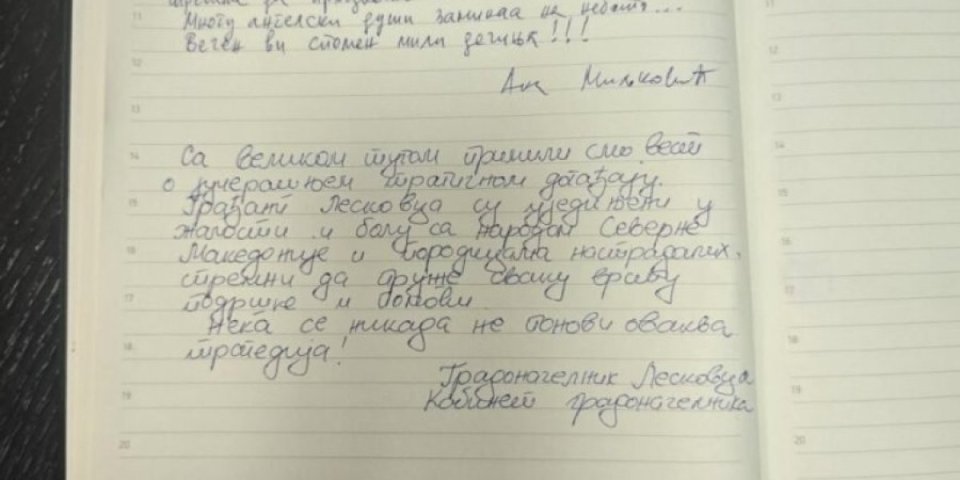 Многу ангелски души заминаа на небото...
Вечен ви спомен мили дечиња!!!
Ана Милковић
Са великом тугом примили смо вест
о јучерашњем трагичном догађају.
Грађани Лесковца су уједињени у
жалости и болу са народом Северне
Македоније и породицама настрадалих,
спремни да пруже сваку врсту
подршке и помоћи.
Нека се никада не понови оваква
трагедија!
Градоначелник Лесковца
Кабинет градоначелника
11
12
13
14
15
16
17
18
19
20